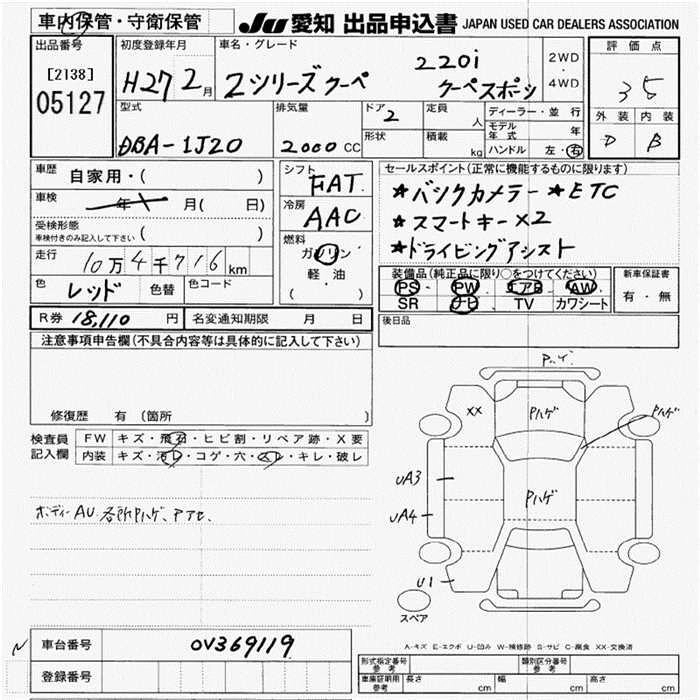 車内保管・守衛保管
JU 愛知 出品申込書 JAPAN USED CAR DEALERS ASSOCIATION
出品番号
[2138]
05127
初度登録年月
H27 2月
車名・グレード
2シリーズクーペ
220i
クーペスポーツ
2WD
・
4WD
評価点
35
外装 内装
D B
型式
DBA-1J20
排気量
2000 CC
ドア
2
定員
人
形状
積載
kg
ディーラー・並行
モデル年式 年
ハンドル 左・右
車歴
自家用・( )
車検
年 月( 日)
受検形態
車検付きのみ記入して下さい ( )
走行
10万4千716km
色
レッド
色替
色コード
シフト
FAT
冷房
AAC
燃料
ガソリン
軽油
( ・ )
セールスポイント(正常に機能するものに限ります)
★バックカメラー ★ETC
★スマートキーX2
★ドライビングアシスト
装備品(純正品に限り○をつけてください)
PS PW エアB AW
SR ナビ TV カワシート
新車保証書
有・無
R券 18,110 円
名変通知期限 月 日
後日品
注意事項申告欄(不具合内容等は具体的に記入して下さい)
修復歴 有(箇所 )
検査員記入欄
FW キズ・飛石・ヒビ割・リペア跡・X要
内装 キズ・汚レ・コゲ・穴・スレ・キレ・破レ
ボディーAU 各所Pハゲ、アセ、
Pハゲ
XX
Pハゲ
Pハゲ
UA3
Pハゲ
UA4
U1
スペア
A-キズ E-エクボ U-凹み W-補修跡 S-サビ C-腐食 XX-交換済
車台番号
0V369119
登録番号
形式指定番号 参考
類別区分番号 参考
車庫証明用 参考
長さ cm
幅 cm
高さ cm